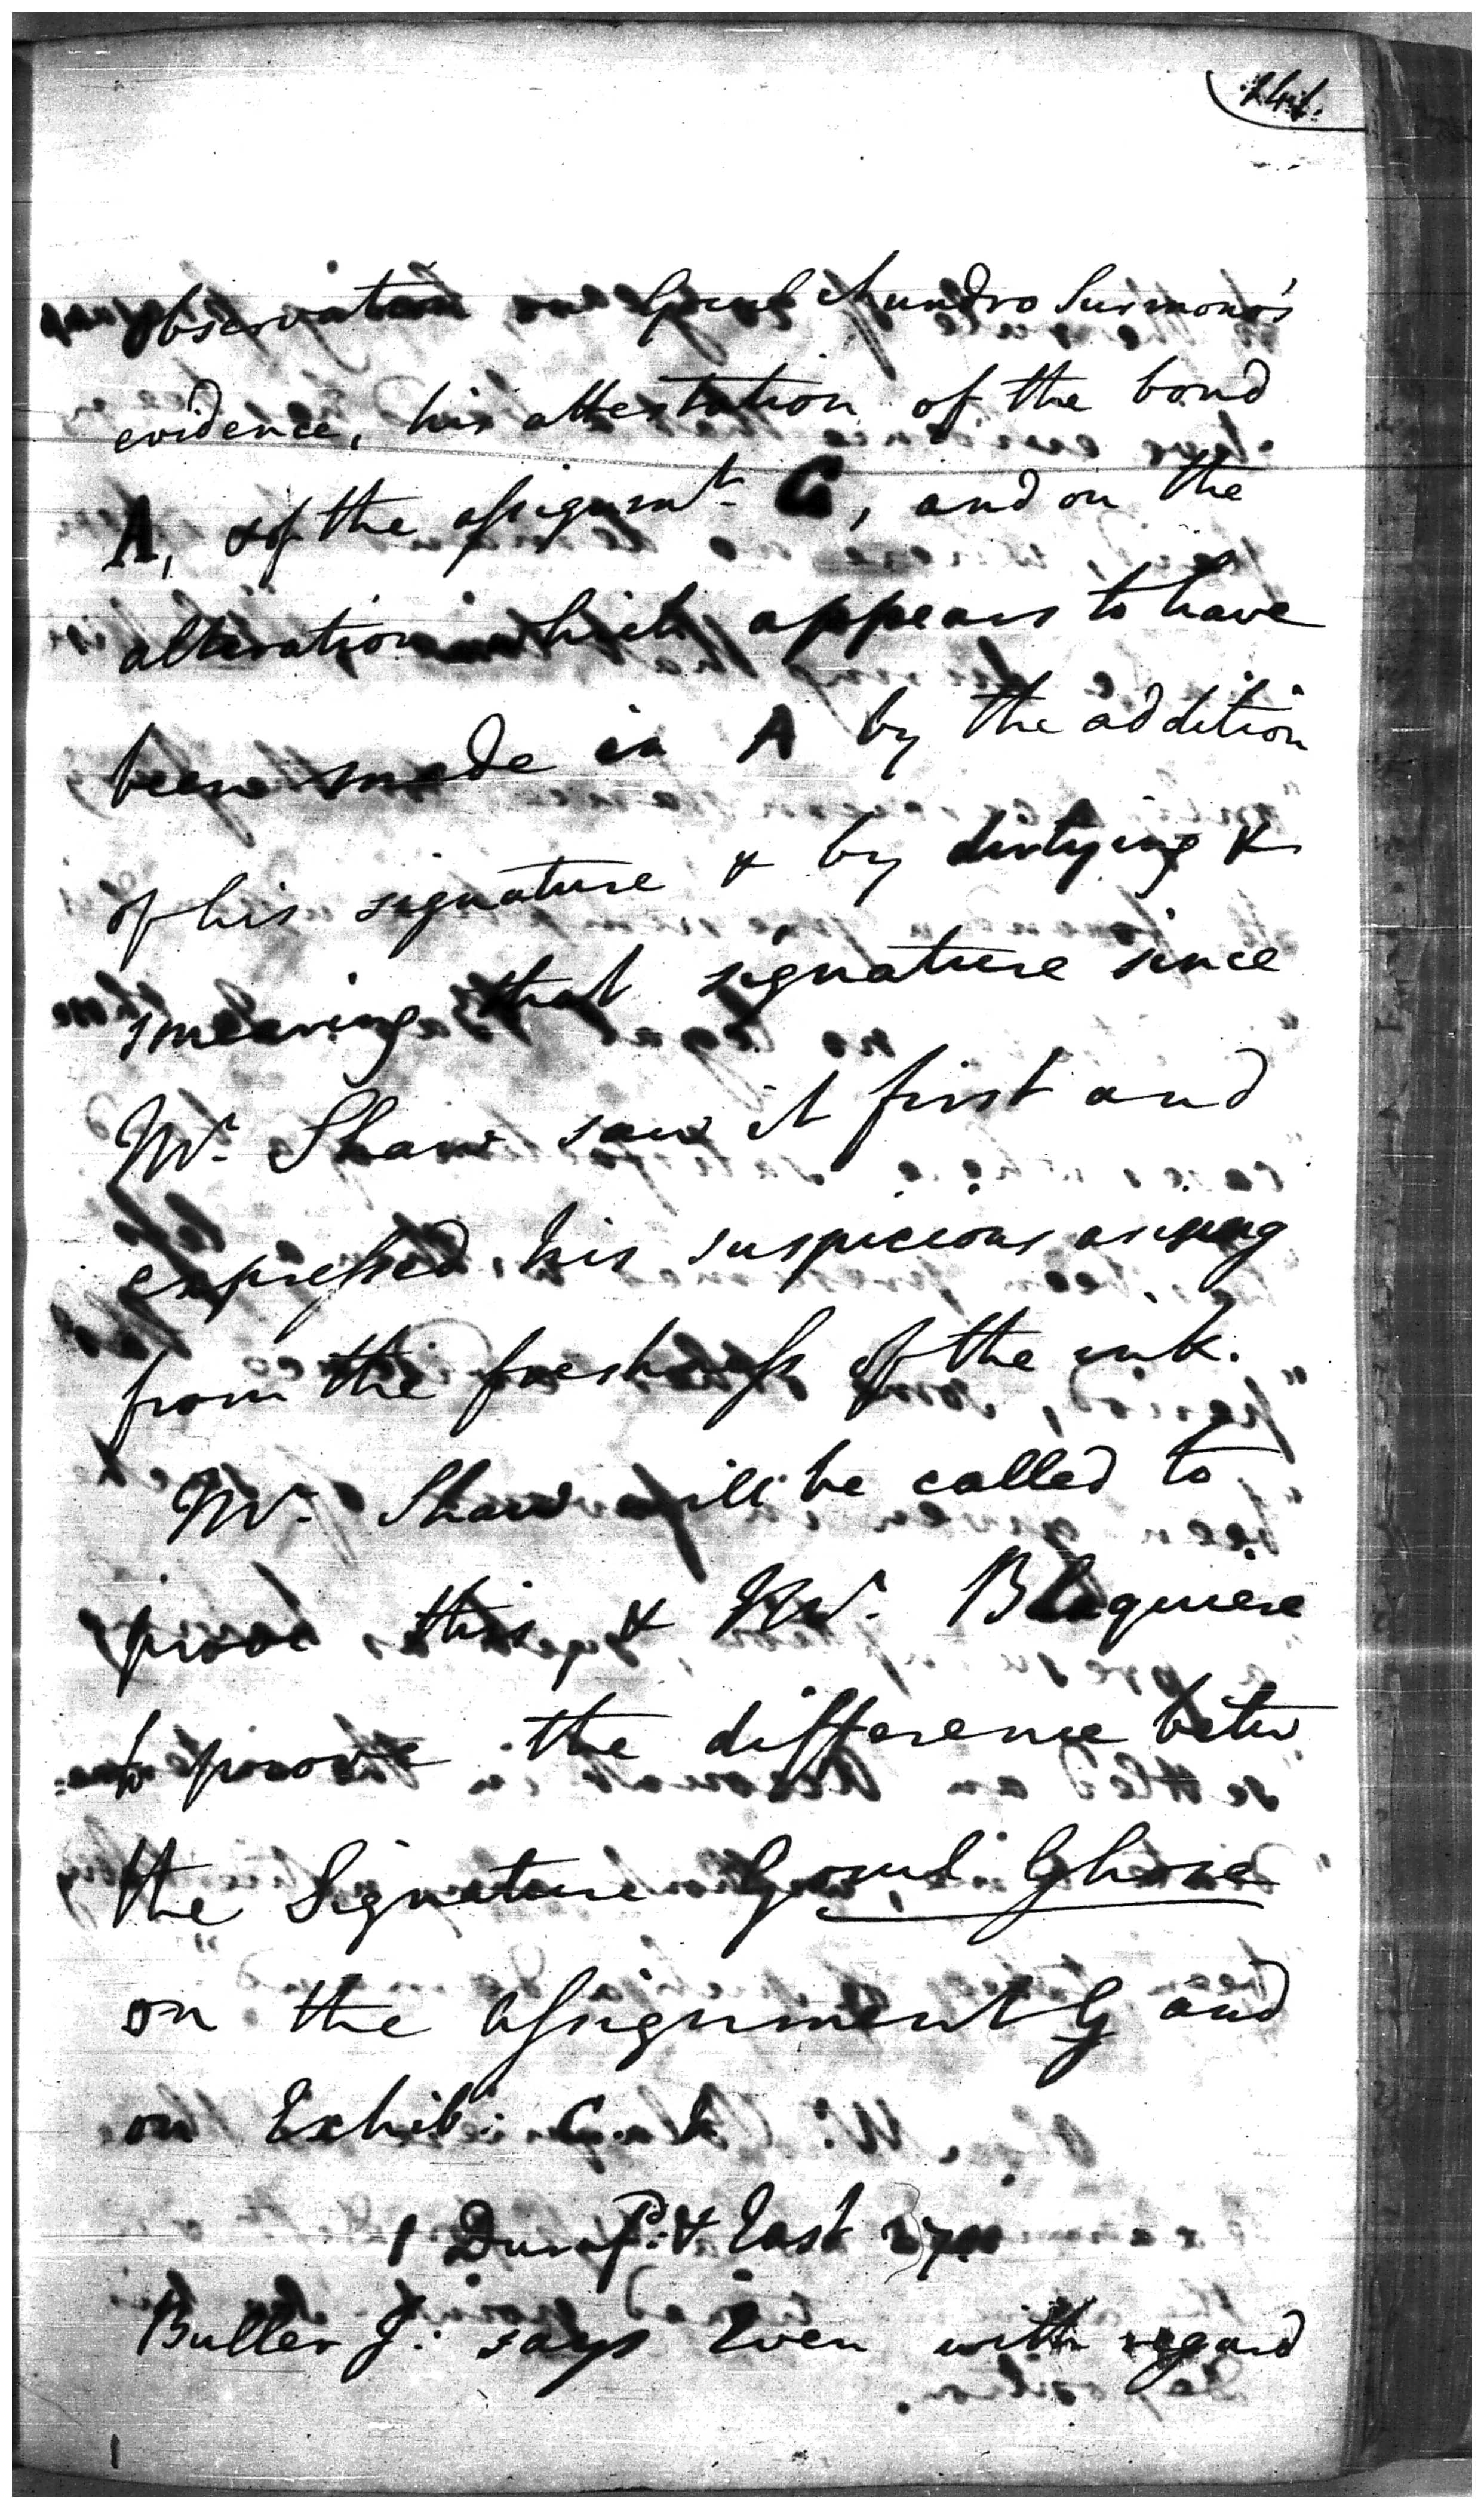 observation on Gocul Chundro Surmono's
evidence, his attestation of the bond
A, & of the assignmt. G, and on the
alteration which appears to have
been made in A by the addition
of his signature & by dirtying &
smearing that signature since
Mr. Shaw saw it first and
expressed his suspicions arising
from the freshness of the ink.
Mr. Shaw will be called to
prove this & Mr. Blaquiere
to prove the difference betw
the Signature Gocul Ghose
on the assignment G and
on Exhib:
1 Durnf: & East
Buller J: says Even with regard